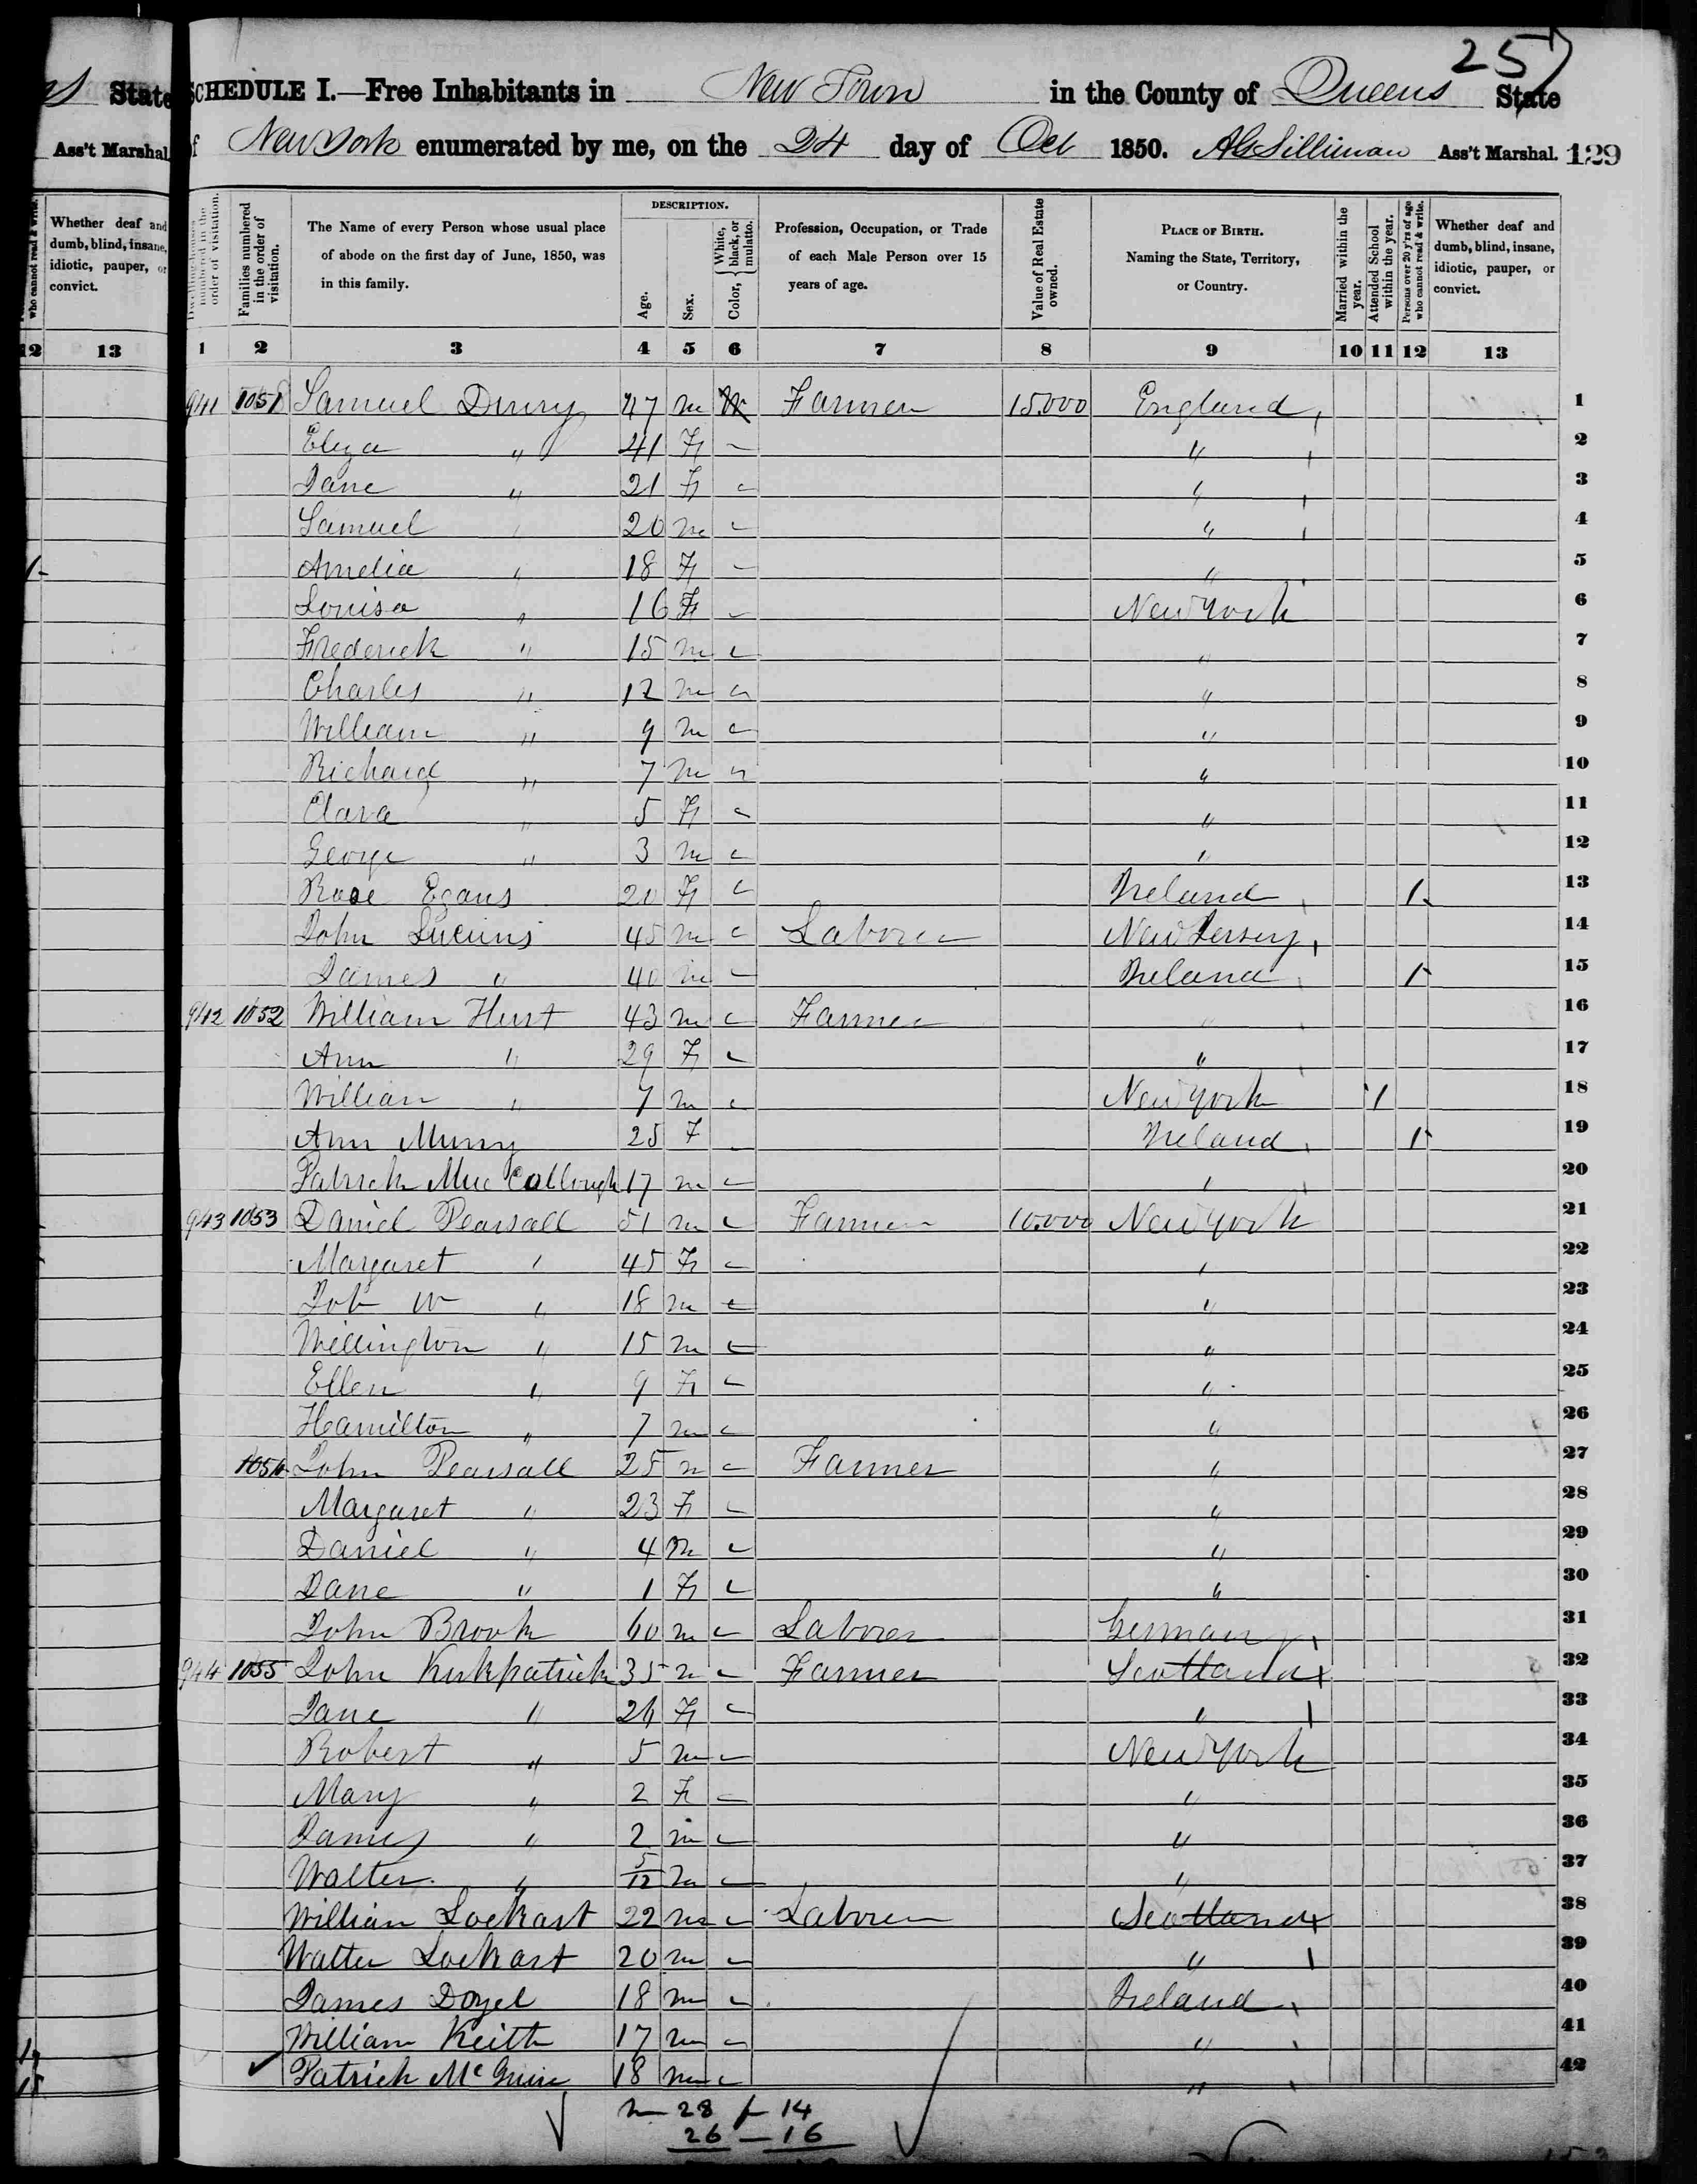 257
State SCHEDULE I.—Free Inhabitants in New Town in the County of Queens State
Ass't Marshal. of New York enumerated by me, on the 24 day of Oct 1850. Ass't Marshal. 129
who cannot read & write.
Whether deaf and dumb, blind, insane, idiotic, pauper, or convict.
12 13
Dwelling-houses numbered in the order of visitation.
Families numbered in the order of visitation.
The Name of every Person whose usual place of abode on the first day of June, 1850, was in this family.
DESCRIPTION.
Age.
Sex.
Color, { White, black, or mulatto.
Profession, Occupation, or Trade of each Male Person over 15 years of age.
Value of Real Estate owned.
PLACE OF BIRTH. Naming the State, Territory, or Country.
Married within the year.
Attended School within the year.
Persons over 20 y'rs of age who cannot read & write.
Whether deaf and dumb, blind, insane, idiotic, pauper, or convict.
1 2 3 4 5 6 7 8 9 10 11 12 13
941 1051 Samuel Drury 47 m W Farmer 15.000 England 1
Eliza " 41 F " 2
Jane " 21 F " 3
Samuel " 20 m " 4
Amelia " 18 F " 5
Louisa " 16 F New York 6
Frederick " 15 m " 7
Charles " 12 m " 8
William " 9 m " 9
Richard " 7 m " 10
Clara " 5 F " 11
George " 3 m " 12
Rose Egans 20 F Ireland 1 13
John 45 m Laborer New Jersey 14
James " 40 m Ireland 1 15
942 1052 William Hurst 43 m Farmer " 16
Ann " 29 F " 17
William " 7 m New York 1 18
Ann Murry 25 F Ireland 1 19
Patrick 17 m " 20
943 1053 Daniel Pearsall 51 m Farmer 10.000 New York 21
Margaret " 45 F " 22
Job W " 18 m " 23
Wellington " 15 m " 24
Ellen " 9 F " 25
Hamilton " 7 m " 26
1054 John Pearsall 25 m Farmer " 27
Margaret " 23 F " 28
Daniel " 4 m " 29
Jane " 1 F " 30
John Brook 60 m Laborer Germany 31
944 1055 John Kirkpatrick 35 m Farmer Scotland 32
Jane " 26 F " 33
Robert " 5 m New York 34
Mary " 2 F " 35
James " 2 m " 36
Walter " 5/12 m " 37
William Lockart 22 m Laborer Scotland 38
Walter Lockart 20 m " 39
James Doyel 18 m Ireland 40
William Keith 17 m " 41
Patrick McGuire 18 m " 42
m 28 f 14
26 — 16